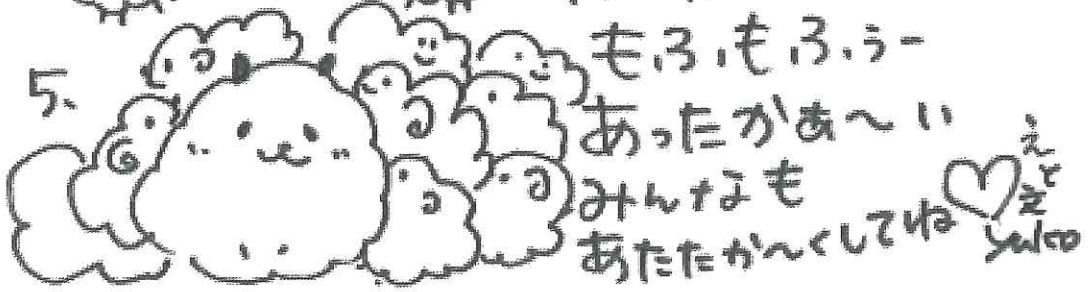 5.
もふもふぅー
あったかぁ〜い
みんなも
あたたか〜くしてね♡
えとえ
yuko